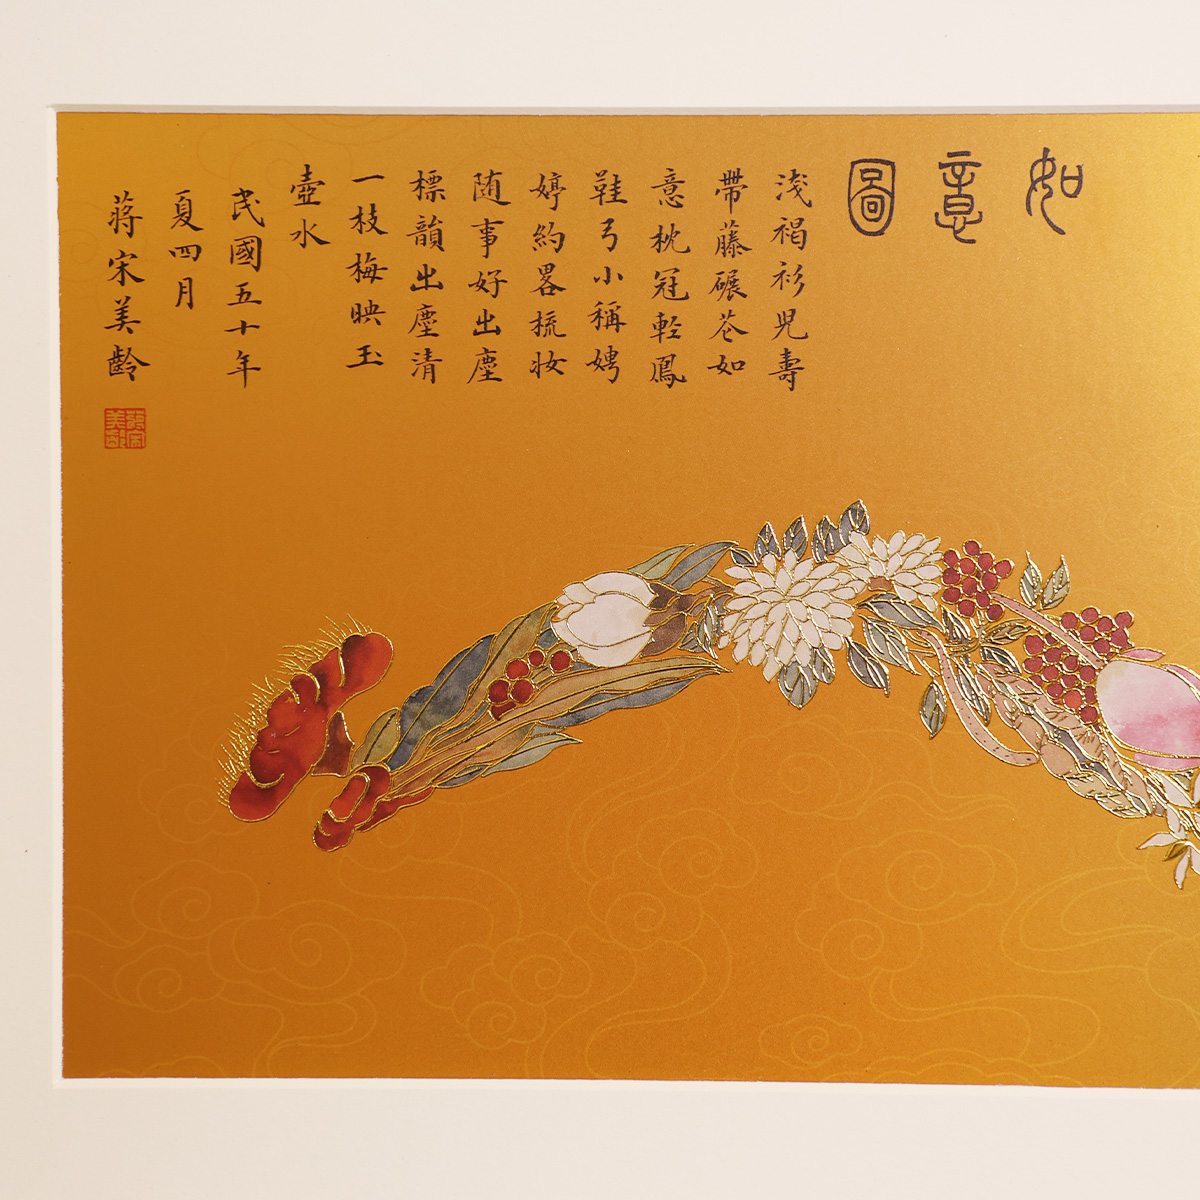 如意圖
淺褐衫兒壽
帶藤碾花如
意枕冠輕鳳
鞋弓小稱娉
婷約畧梳妝
随事好出塵
標韻出塵清
一枝梅映玉
壺水
民國五十年
夏四月
蔣宋美齡
蔣宋美齡